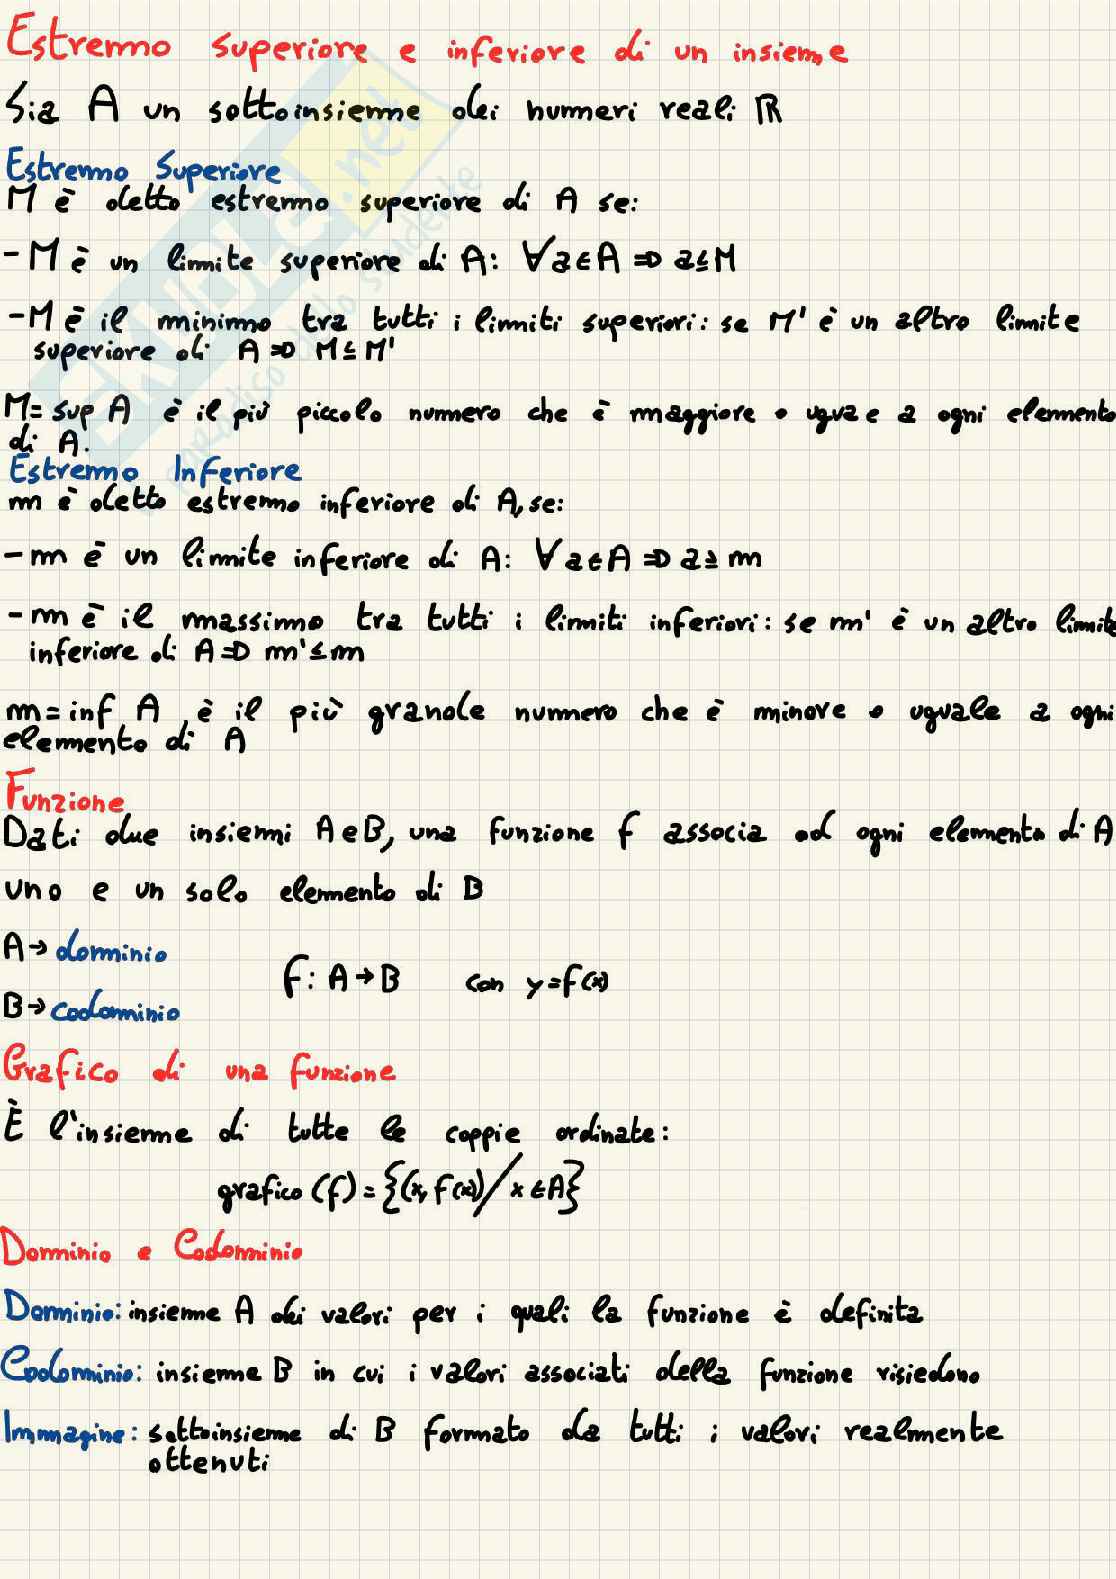 Estremo superiore e inferiore di un insieme
Sia A un sottoinsieme dei numeri reali ℝ
Estremo Superiore
M è detto estremo superiore di A se:
- M è un limite superiore di A: ∀a∈A ⇒ a≤M
- M è il minimo tra tutti i limiti superiori: se M' è un altro limite
superiore di A ⇒ M≤M'
M= sup A è il più piccolo numero che è maggiore o ugua e a ogni elemento
di A.
Estremo Inferiore
m è detto estremo inferiore di A, se:
- m è un limite inferiore di A: ∀a∈A ⇒ a≥m
- m è il massimo tra tutti i limiti inferiori: se m' è un altro limite
inferiore di A ⇒ m'≤m
m=inf A è il più grande numero che è minore o uguale a ogni
elemento di A
Funzione
Dati due insiemi A e B, una funzione f associa ad ogni elemento di A
uno e un solo elemento di B
A→ dominio
f: A→B con y=f(x)
B→ codominio
Grafico di una funzione
È l'insieme di tutte le coppie ordinate:
grafico(f)={(x, f(x))/x∈A}
Dominio e Codominio
Dominio: insieme A dei valori per i quali la funzione è definita
Codominio: insieme B in cui i valori associati della funzione risiedono
Immagine: sottoinsieme di B formato da tutti i valori realmente
ottenuti
SKUOLA.net